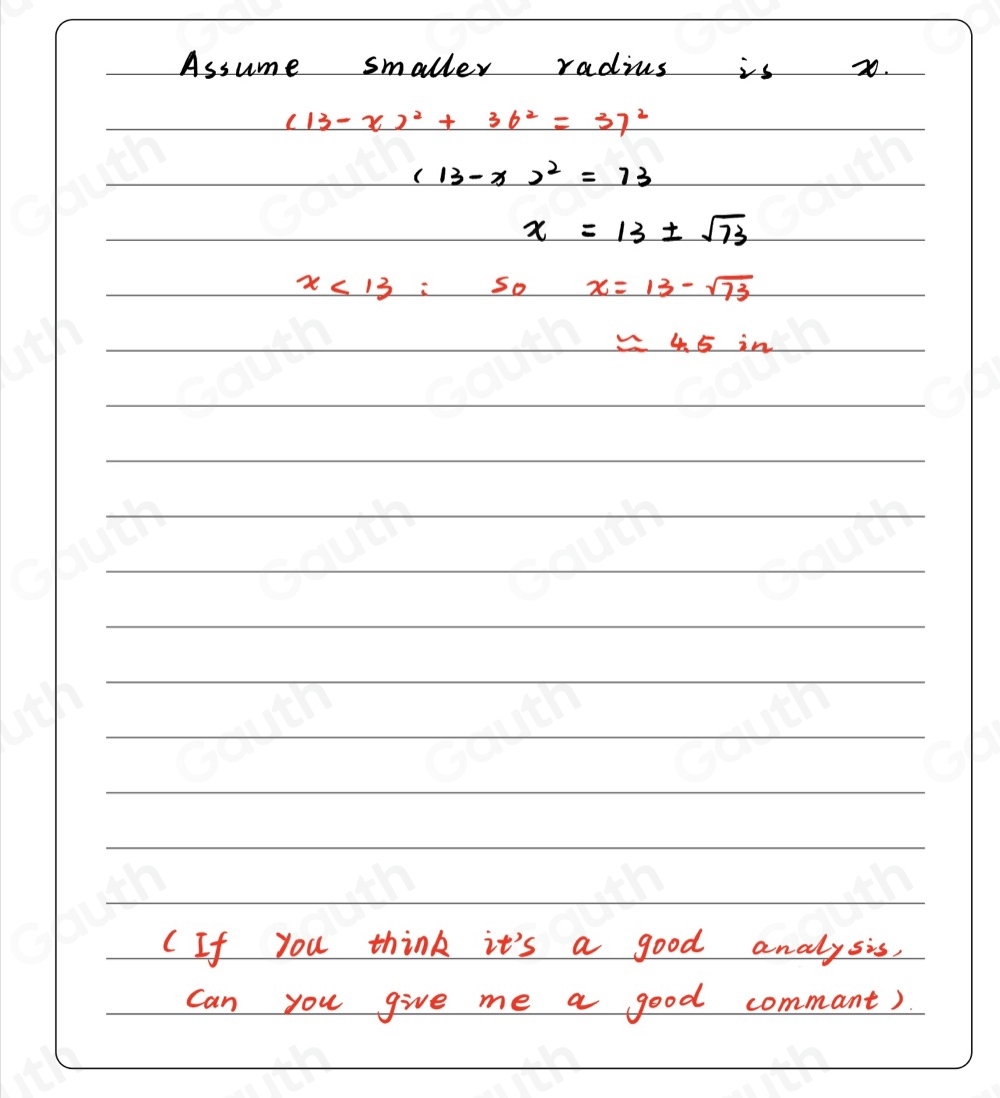 Assume smaller radius is x.
(13-x)² + 36² = 37²
(13-x)² = 73
x = 13 ± √73
x < 13 : so x = 13 - √73
≈ 4.5 in
(If you think it's a good analysis,
Can you give me a good commant).
Gauth